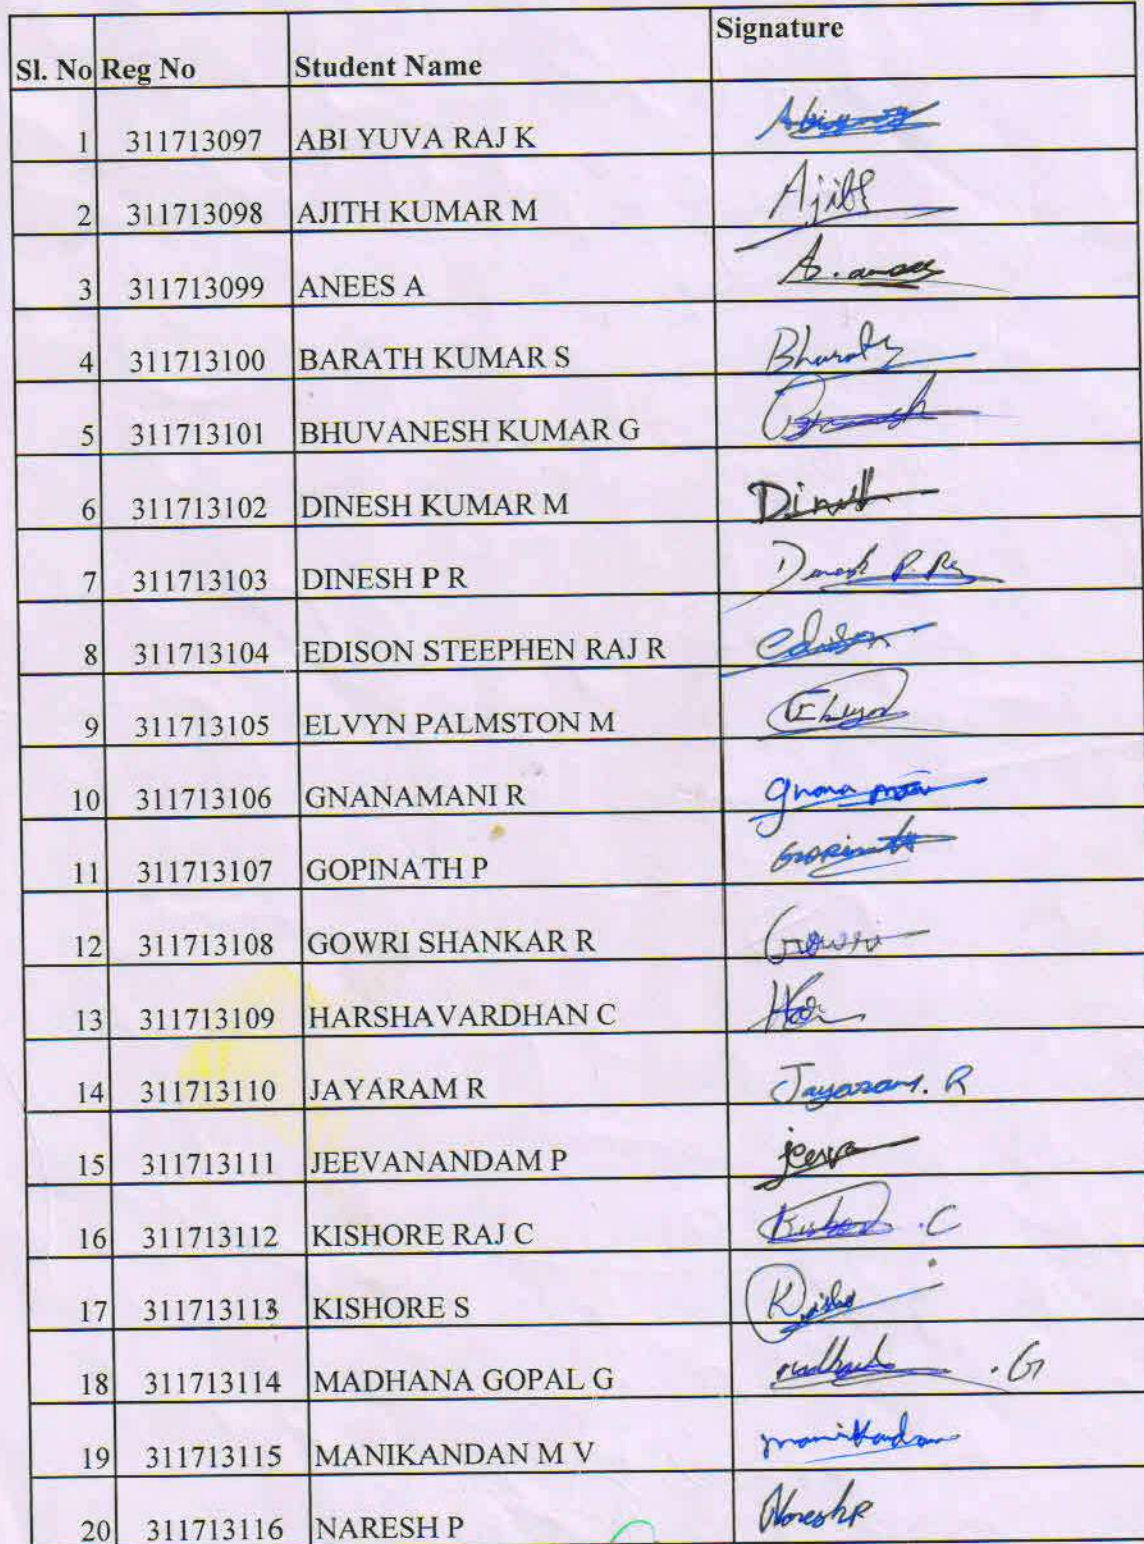 Sl. No Reg No Student Name Signature
1 311713097 ABI YUVA RAJ K
2 311713098 AJITH KUMAR M Ajith
3 311713099 ANEES A A. anees
4 311713100 BARATH KUMAR S Bharath
5 311713101 BHUVANESH KUMAR G
6 311713102 DINESH KUMAR M Dinesh
7 311713103 DINESH P R Dinesh P.R
8 311713104 EDISON STEEPHEN RAJ R edison
9 311713105 ELVYN PALMSTON M
10 311713106 GNANAMANI R gnana mani
11 311713107 GOPINATH P Gopinath
12 311713108 GOWRI SHANKAR R Gowri
13 311713109 HARSHAVARDHAN C
14 311713110 JAYARAM R Jayaram. R
15 311713111 JEEVANANDAM P jeeva
16 311713112 KISHORE RAJ C .C
17 311713113 KISHORE S
18 311713114 MADHANA GOPAL G .G
19 311713115 MANIKANDAN M V manikandan
20 311713116 NARESH P NareshP